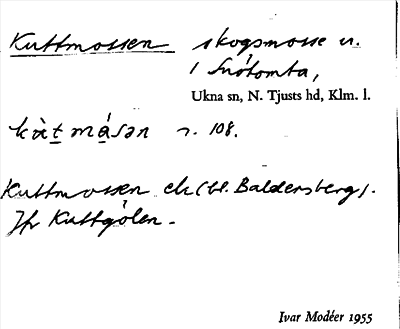 Kuttmossen skogsmosse n.
i Snötomta,
Ukna sn, N. Tjusts hd, Klm. l.
kàt má̱sən n. 108.
Kuttmossen ek (bl. Baldersberg).
Jfr Kuttgölen.
Ivar Modéer 1955